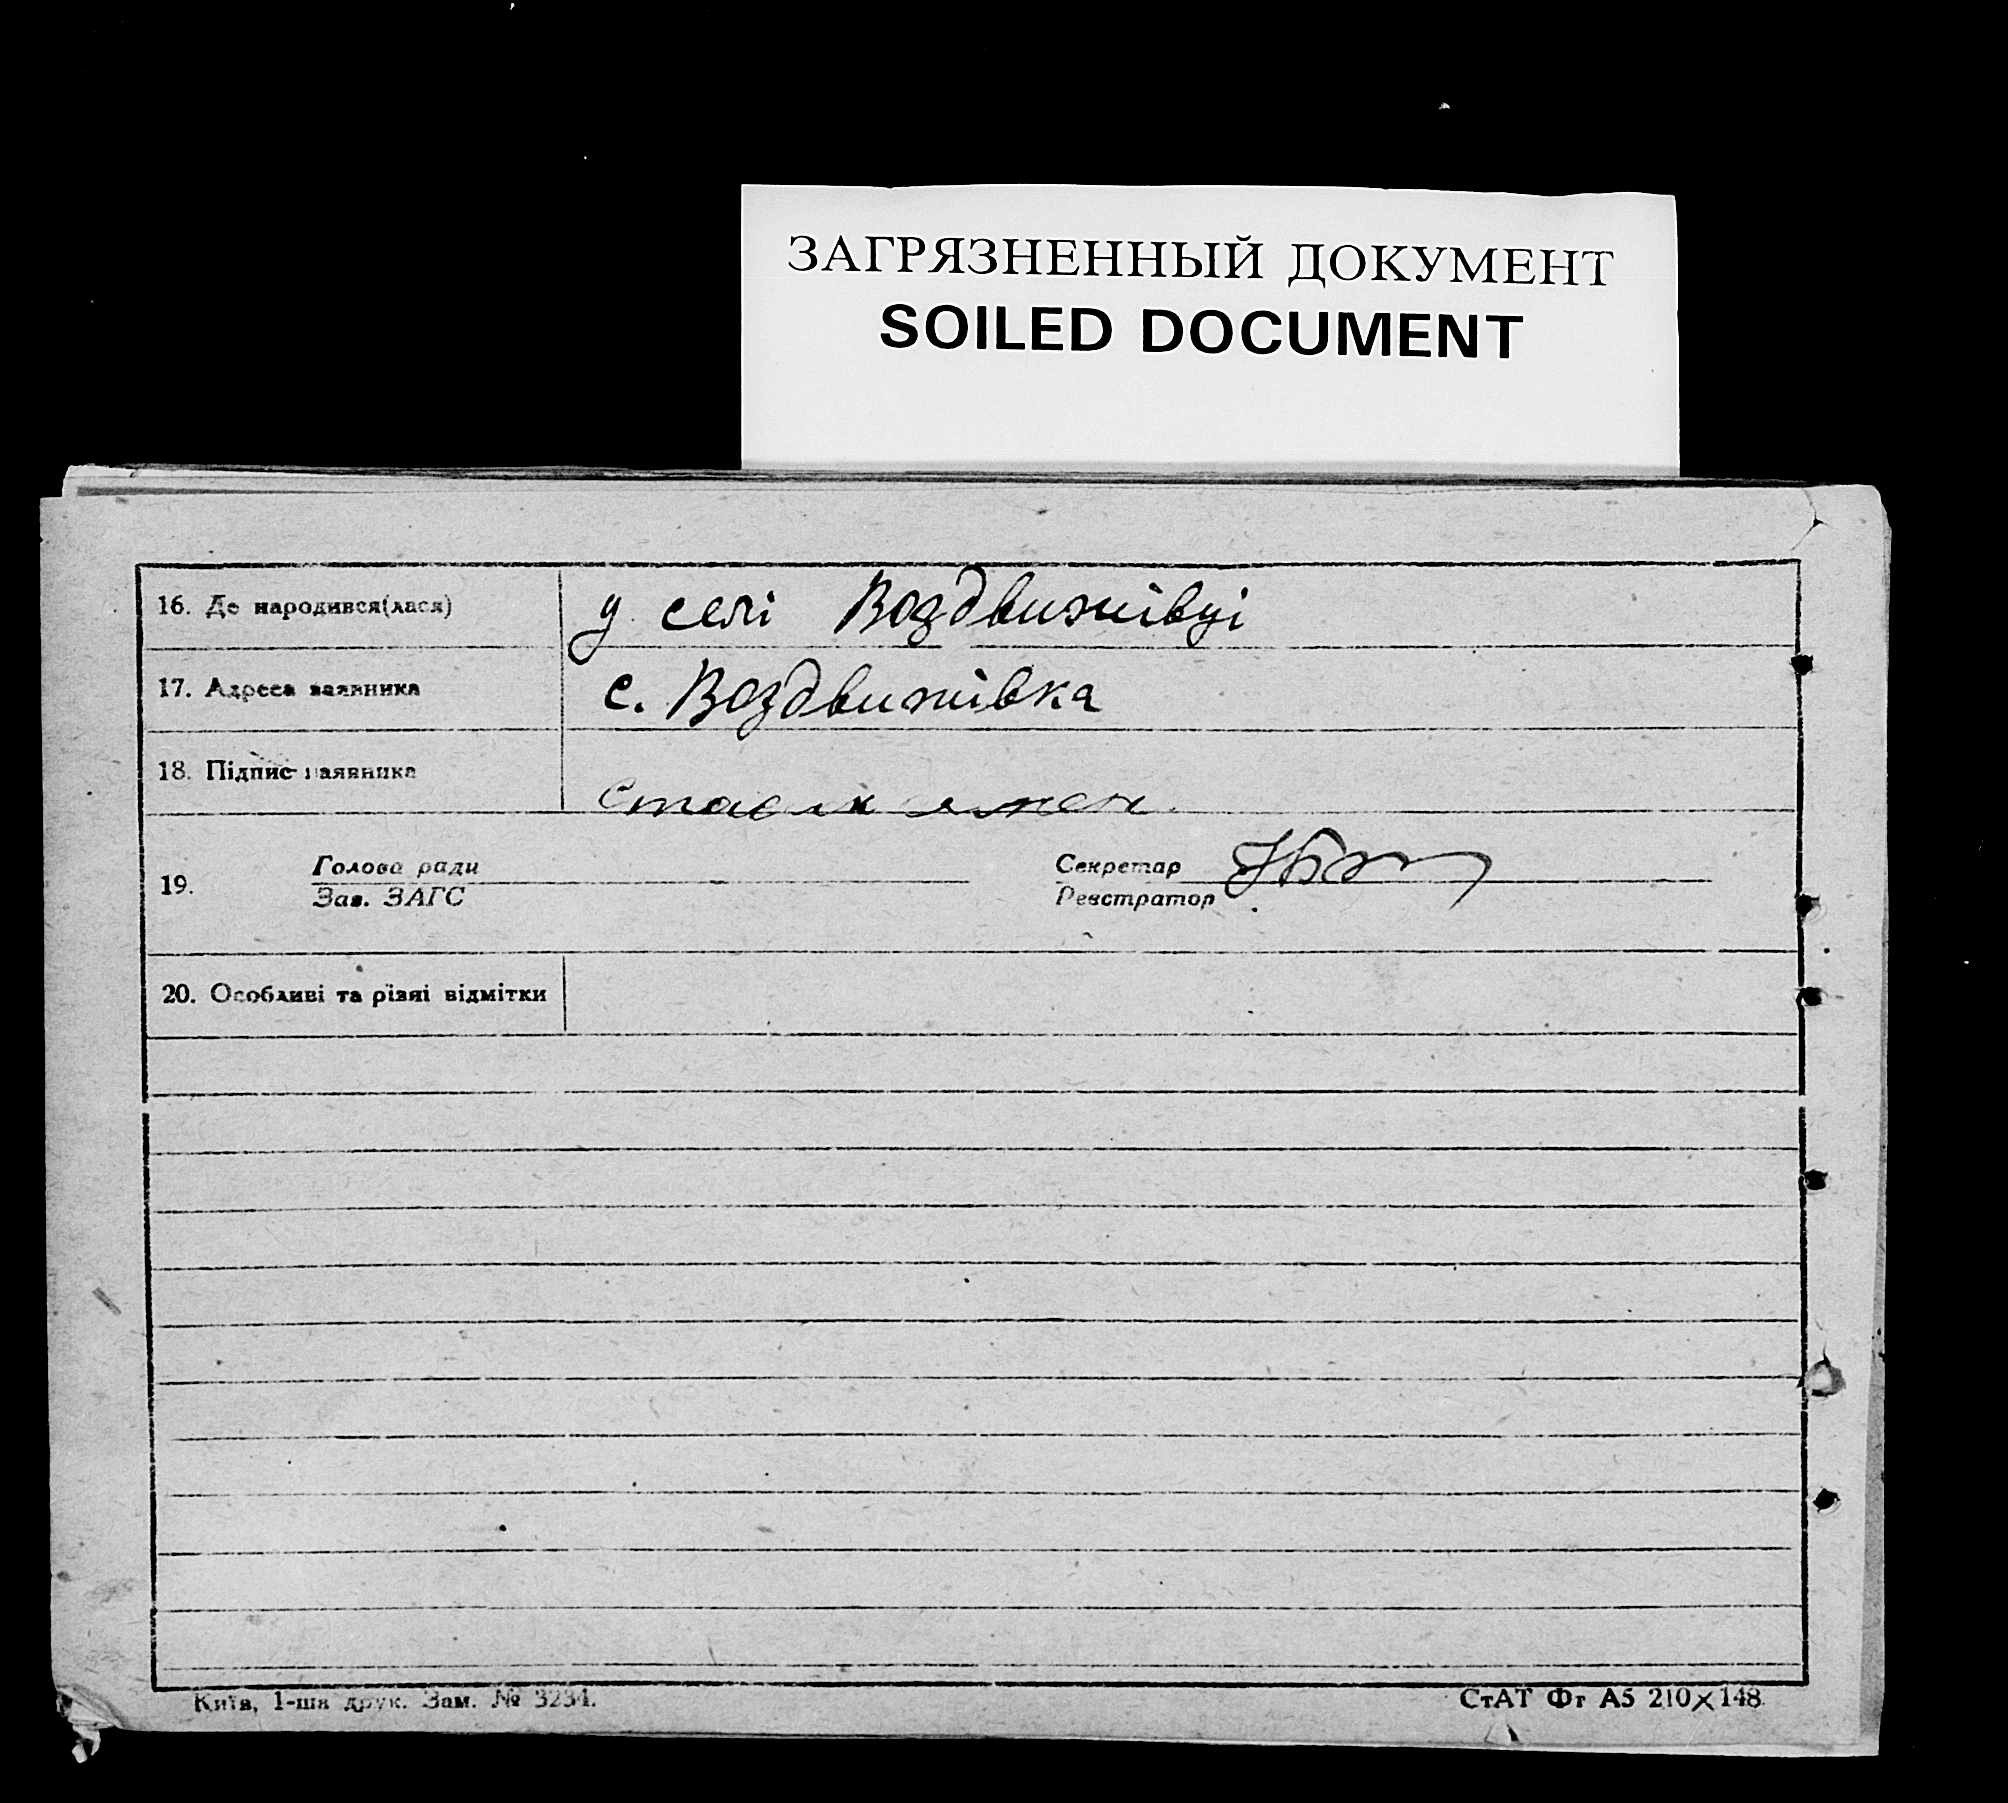 ЗАГРЯЗНЕННЫЙ ДОКУМЕНТ
SOILED DOCUMENT
16. Де народився(лася) у селі Воздвижівці
17. Адреса заявника с. Воздвижівка
18. Підпис заявника
19. Голова ради Секретар
Зав. ЗАГС Реєстратор
20. Особливі та різні відмітки
Київ, 1-ша друк. Зам. № 3234. СтАТ Фг А5 210×148